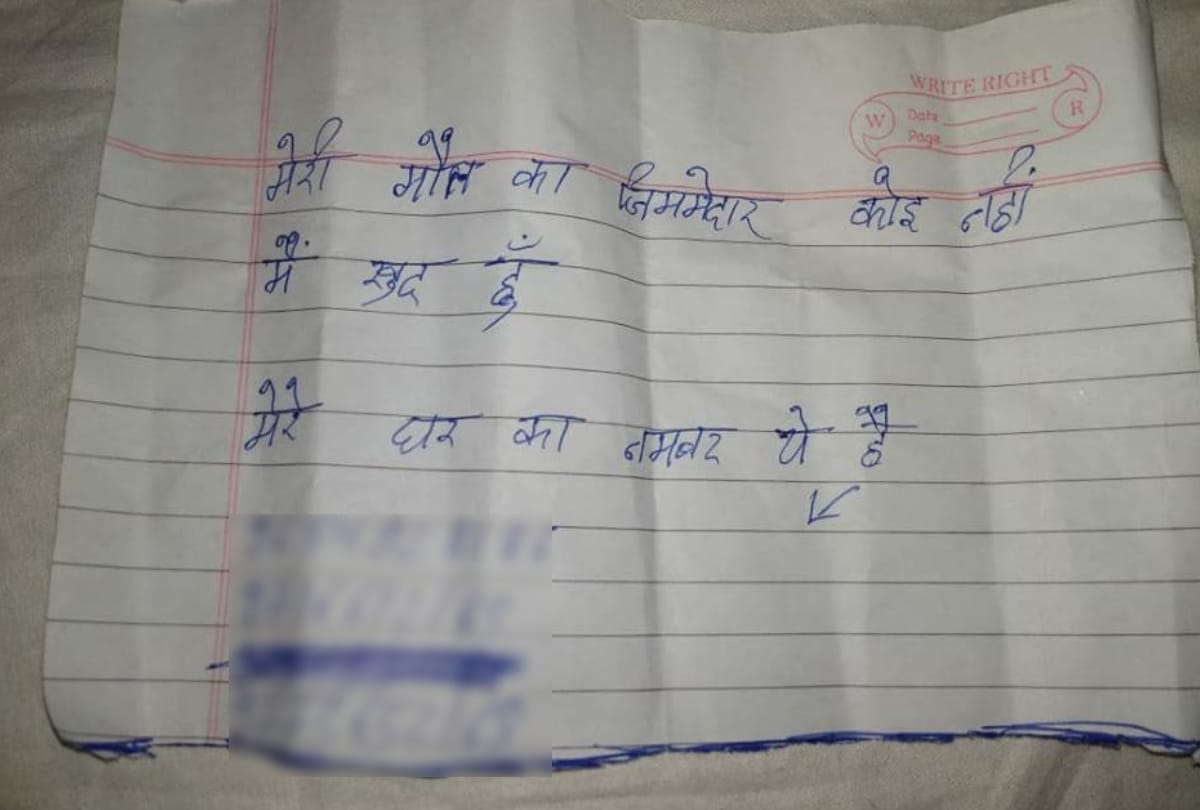 WRITE RIGHT
W Date R
Page
मेरी मौत का जिममेदार कोइ नहीं
मैं खुद हुँ
मेरे घर का नमबर ये है